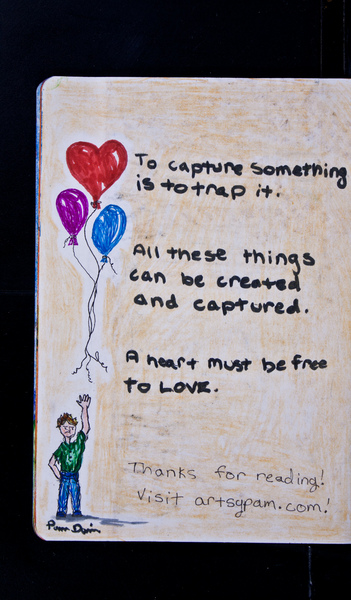 To capture something
is to trap it.
All these things
can be created
and captured.
A heart must be free
to LOVE.
Thanks for reading!
Visit artsypam.com!